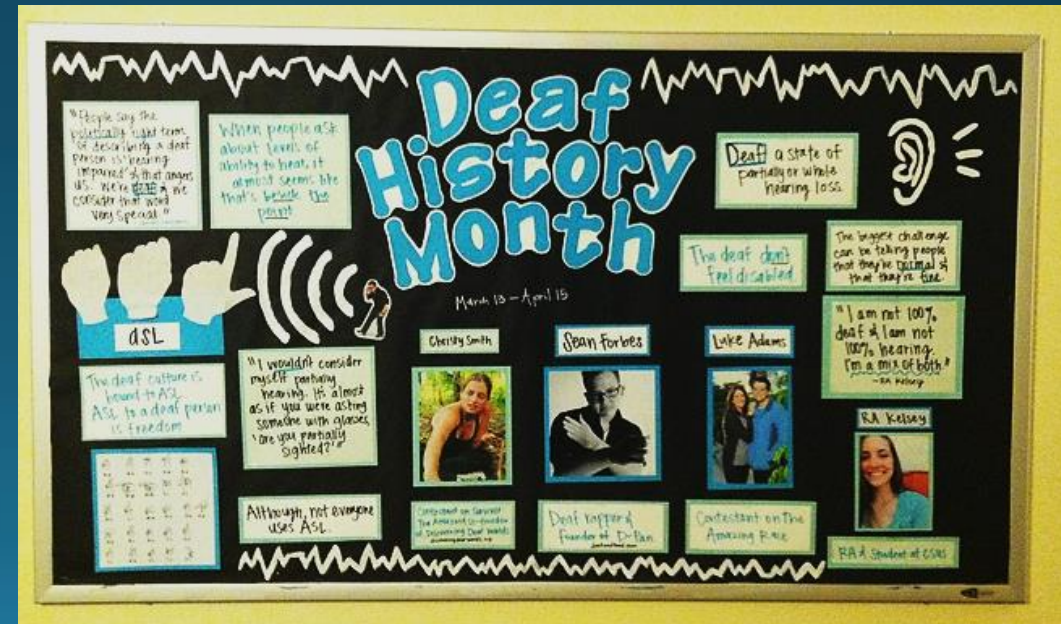 Deaf
History
Month
March 13 – April 15
"People say the
politically right term
of describing a deaf
person is 'hearing
impaired' & that angers
us. We're deaf & we
consider that word
very special."
When people ask
about levels of
ability to hear, it
almost seems like
that's beside the
point
Deaf: a state of
partially or whole
hearing loss.
The deaf don't
feel disabled.
The biggest challenge
can be telling people
that they're normal &
that they're fine.
"I am not 100%
deaf & I am not
100% hearing.
I'm a mix of both."
-RA Kelsey
ASL
The deaf culture is
bound to ASL
ASL to a deaf person
is freedom
"I wouldn't consider
myself partially
hearing. It's almost
as if you were asking
someone with glasses,
'are you partially
sighted?'"
Although, not everyone
uses ASL.
Christy Smith
Contestant on Survivor
The Amazon
of Discovering Deaf Worlds
Sean Forbes
Deaf rapper &
founder of D-Pan
Luke Adams
Contestant on The
Amazing Race
RA Kelsey
RA & Student at CSUS